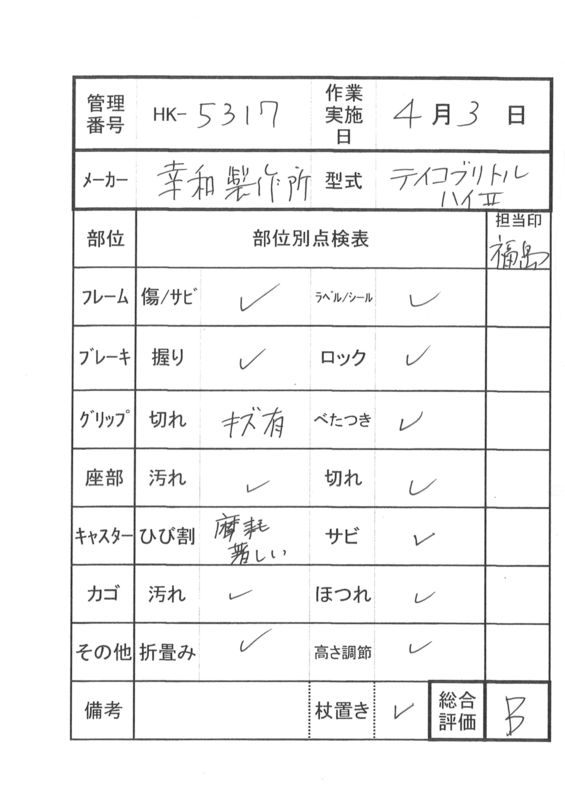 管理番号 HK-5317 作業実施日 4月3日
メーカー 幸和製作所 型式 テイコブリトルハイⅡ
部位 部位別点検表 担当印 福島
フレーム 傷/サビ ✓ ラベル/シール ✓
ブレーキ 握り ✓ ロック ✓
グリップ 切れ キズ有 べたつき ✓
座部 汚れ ✓ 切れ ✓
キャスター ひび割 摩耗著しい サビ ✓
カゴ 汚れ ✓ ほつれ ✓
その他 折畳み ✓ 高さ調節 ✓
備考 杖置き ✓ 総合評価 B